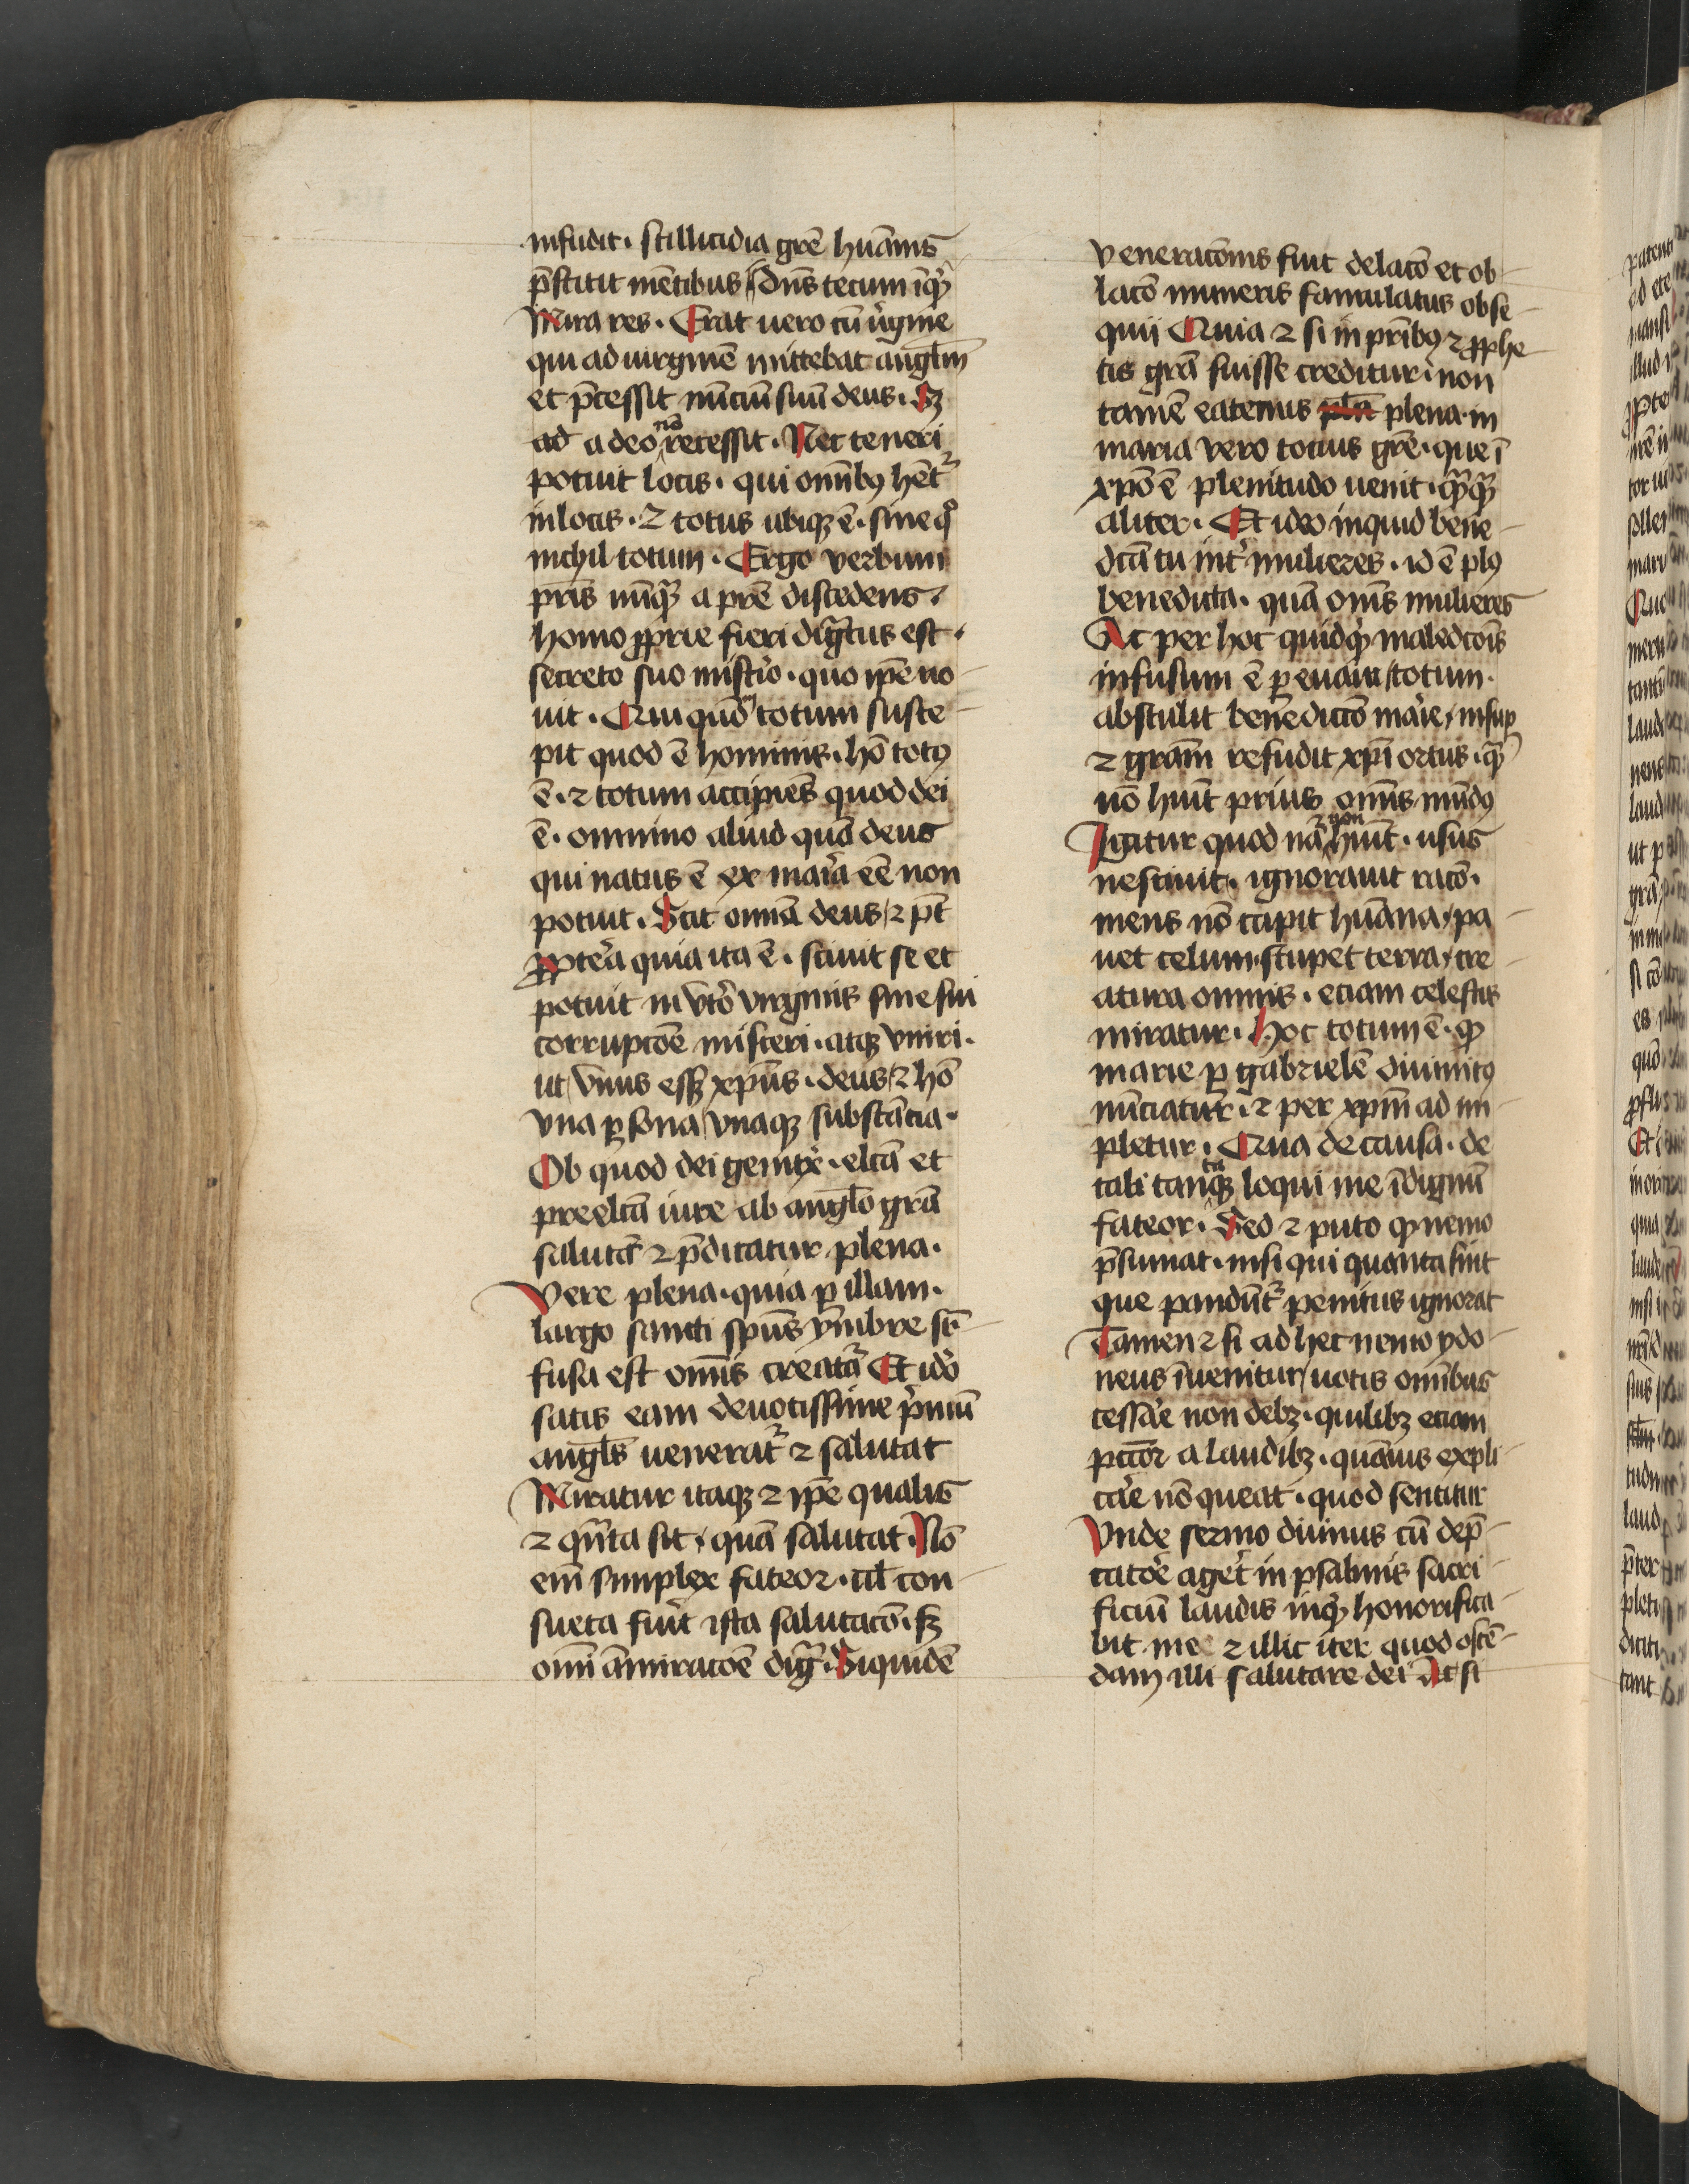 infudit · stillicidia grē hūanis
p̄stitit mētibus / dn̄s tecum inqͥt
Mira res · Erat uero cū ûgine
qui ad uirginē mittebat angl̄m
et p̄cessit nūciū suū deus · sꝫ
ad a deo nō recessit · Nec teneri
potuit locis · qui omībꝯ hētʳ
in locis · ⁊ totus ubiqꝫ ē · sine qͦ
nichil totum · Ergo verbum
pr̄is nūqᷓ a pr̄e discedens ·
homo ꝓprie fieri digᷓtus est ·
secreto suo mist̄io · quo ip̄e no
uit · Qui quōm totum susce
pit quod ē hominis · hō totꝯ
ē · ⁊ totum accipiēs quod dei
ē · omnino aliud quā deus
qui natus ē ex maria eē non
potuit · Scit omīa deus / ⁊ pt̄
ꝓpterea quia ita ē · sciuit se et
potuit in vtͦo virginis sine sui
corrupcōe misceri · atqꝫ vniri ·
ut / vnus essꝫ xp̄us · deus / ⁊ hō
vna ꝑsona / vnaqꝫ substācia ·
Ob quod dei genitͥx · elc̄ā et
preelc̄ā iure ab angl̄o grā
salutaʳ ⁊ p̄dicatur plena ·
Vere plena · quia ꝑ illam ·
largo sancti sp̄us ymbre suꝑ
fusa est omīs creatᷓa Et idō
satis eam deuotissime pͥmū
angl̄s ueneratʳ ⁊ salutat
Miratur itaqꝫ ⁊ ip̄e qualis
⁊ qn̄ta sit / quā salutat · Nō
em̄ simplex fateor · ul̄ con
sueta fuit ista salutacō · sꝫ
omī āmiracōe digᷓ · Siquidē
veneracōnis fuit delacō et ob
lacō muneris famulatus obse
quij Quia ⁊ si in pr̄ibꝯ ⁊ ꝓphe
tis grā fuisse creditur · non
tamē eatenus plēa plena · in
maria vero tocius grē · que ī
xp̄o ē plenitudo uenit · qᷓqᷓ
aliter · Et ideo inquid bene
dc̄ā tu int̄ mulieres · id ē plꝯ
benedicta · quā om̄s mulieres
Ac per hoc quidqͥd maledcōis
infusum ē ꝑ euam / totum ·
abstulit benedictō marie / insuꝑ
⁊ grām refudit xp̄i ortus · qᷓ
nō huit̄ prius omīs mūdꝯ
Igitur quod nā ⁊ non huit̄ · usus
nesciuit · ignorauit racō ·
mens nō capit hūana / pa
uet celum · stupet terra / cre
atura omnis · eciam celestis
miratur · Hoc totum ē · qͦd
marie ꝑ gabrielē diuinitꝯ
nūciatur · ⁊ per xpm̄ ad im
pletur · Qua de causa · de
tali tantaqꝫ loqui me īdignū
fateor · Sed ⁊ puto qͦd nemo
p̄sumat · nisi qui quanta sint
que pandūtʳ penitus ignorat
Tamen ⁊ si ad hec nemo ydo
neus īuenitur / uotis omībus
cessare non debꝫ · quilibꝫ eciam
pctōr a laudibꝫ · quāuis expli
care nō queat · quod sentitur
Vnde sermo diuinus cū dep̄
catōe aget̄ in psalmis sacri
ficiū laudis inqͥt honorifica
bit me ⁊ illic iter quod ostē
dam illi salutare dei At si